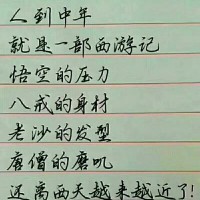 人到中年
就是一部西游记
悟空的压力
八戒的身材
老沙的发型
唐僧的磨叽
还离西天越来越近了!